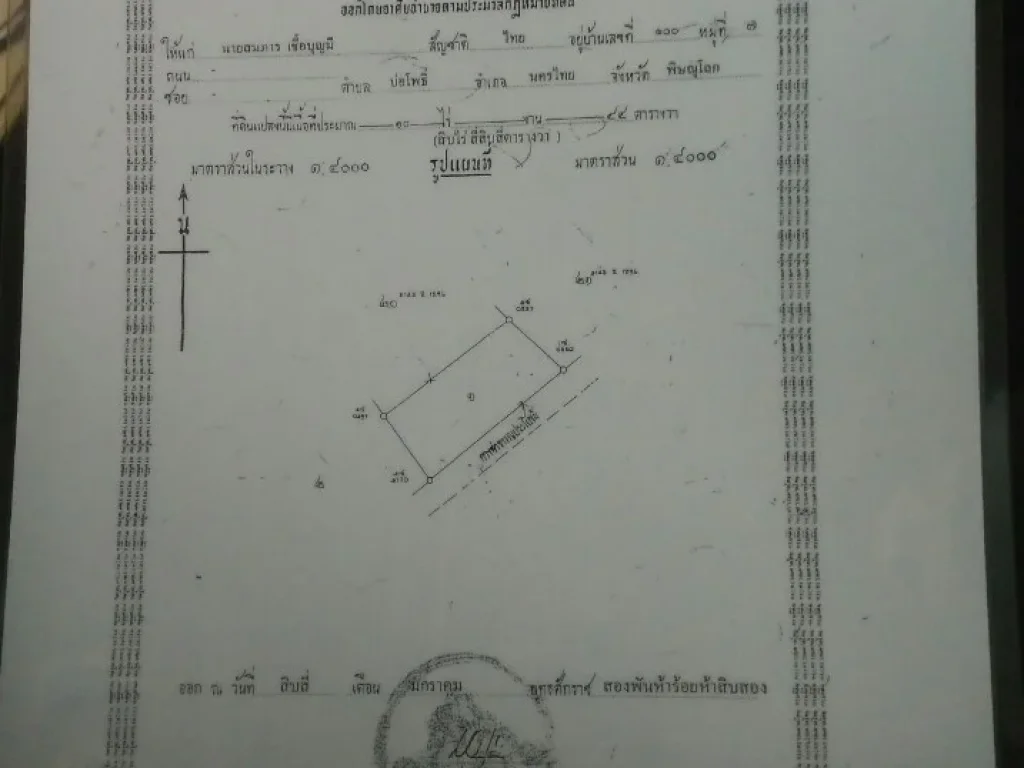 ออกโดยอาศัยอำนาจตามประมวลกฎหมายที่ดิน
ให้แก่ นายสมภาร เชื้อบุญมี สัญชาติ ไทย อยู่บ้านเลขที่ ๑๐๐ หมู่ที่ ๗
ถนน
ซอย ตำบล บ่อโพธิ์ อำเภอ นครไทย จังหวัด พิษณุโลก
ที่ดินแปลงนี้มีเนื้อที่ประมาณ ๑๐ ไร่ งาน ๔๔ ตารางวา
(สิบไร่ สี่สิบสี่ตารางวา)
มาตราส่วนในระวาง ๑:๔๐๐๐ รูปแผนที่ มาตราส่วน ๑:๔๐๐๐
น
๑
ทางสาธารณประโยชน์
๒
ออก ณ วันที่ สิบสี่ เดือน มกราคม พุทธศักราช สองพันห้าร้อยห้าสิบสอง